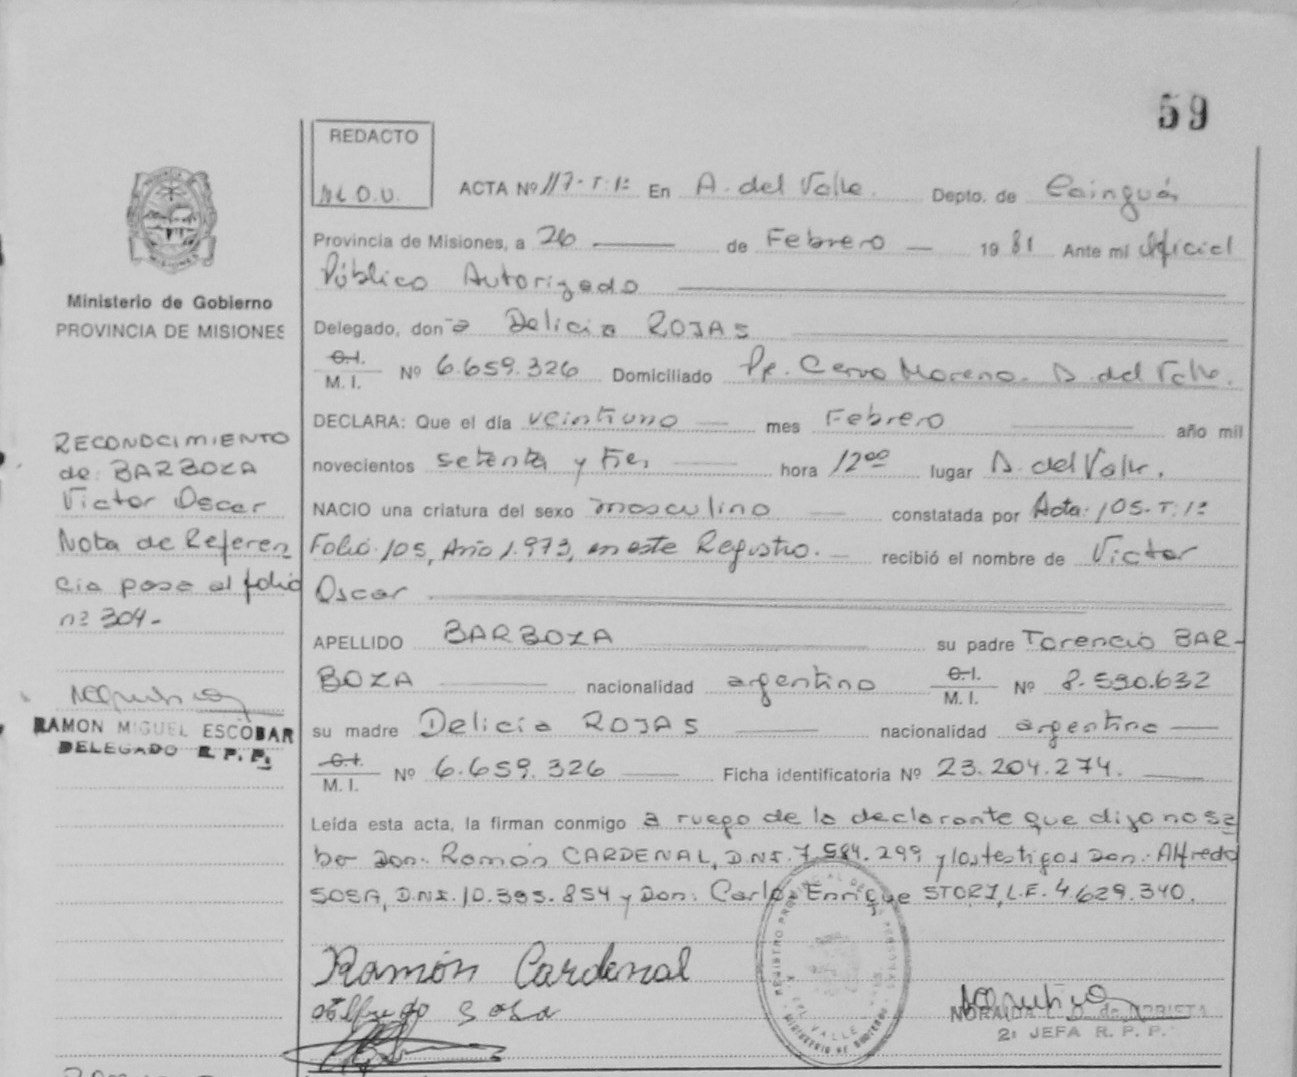 59
REDACTO
N.L.O.U.
ACTA Nº 117-T:1: En A. del Valle. Depto. de Cainguás
Provincia de Misiones, a 26 de Febrero 1981 Ante mí Oficial
Público Autorizado
Delegado, don-a Delicia ROJAS
C.I.
M. I. Nº 6.659.326 Domiciliado Pje. Cerro Moreno. A. del Valle.
DECLARA: Que el día veintiuno mes Febrero año mil
novecientos setenta y tres hora 12⁰⁰ lugar A. del Valle.
NACIO una criatura del sexo masculino constatada por Acta: 105-T:1:
Folio 105, Año 1.973, en este Registro. recibió el nombre de Victor
Oscar
APELLIDO BARBOZA su padre Torencio BAR-
BOZA nacionalidad argentino C.I.
M. I. Nº 8.590.632
su madre Delicia ROJAS nacionalidad argentina
C.I.
M. I. Nº 6.659.326 Ficha identificatoria Nº 23.204.274.
Leída esta acta, la firman conmigo a ruego de la declarante que dijo no sa
ber don: Ramón CARDENAL, D.N.I. 7.584.299 y los testigos don: Alfredo
SOSA, D.N.I. 10.395.854 y Don: Carlos Enrique STORZ, L.E. 4.629.340.
Ramón Cardenal
Alfredo Sosa
NORAIDA
2: JEFA R. P. P.
MISIONES
Ministerio de Gobierno
PROVINCIA DE MISIONES
RECONOCIMIENTO
de: BARBOZA
Victor Oscar
Nota de Referen
cia pase al folio
nº 304-
RAMON MIGUEL ESCOBAR
DELEGADO R. P. P.